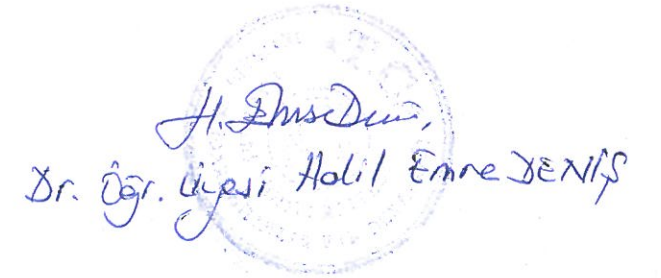 H. Emre Deniş,
Dr. Öğr. Üyesi Halil Emre DENİŞ